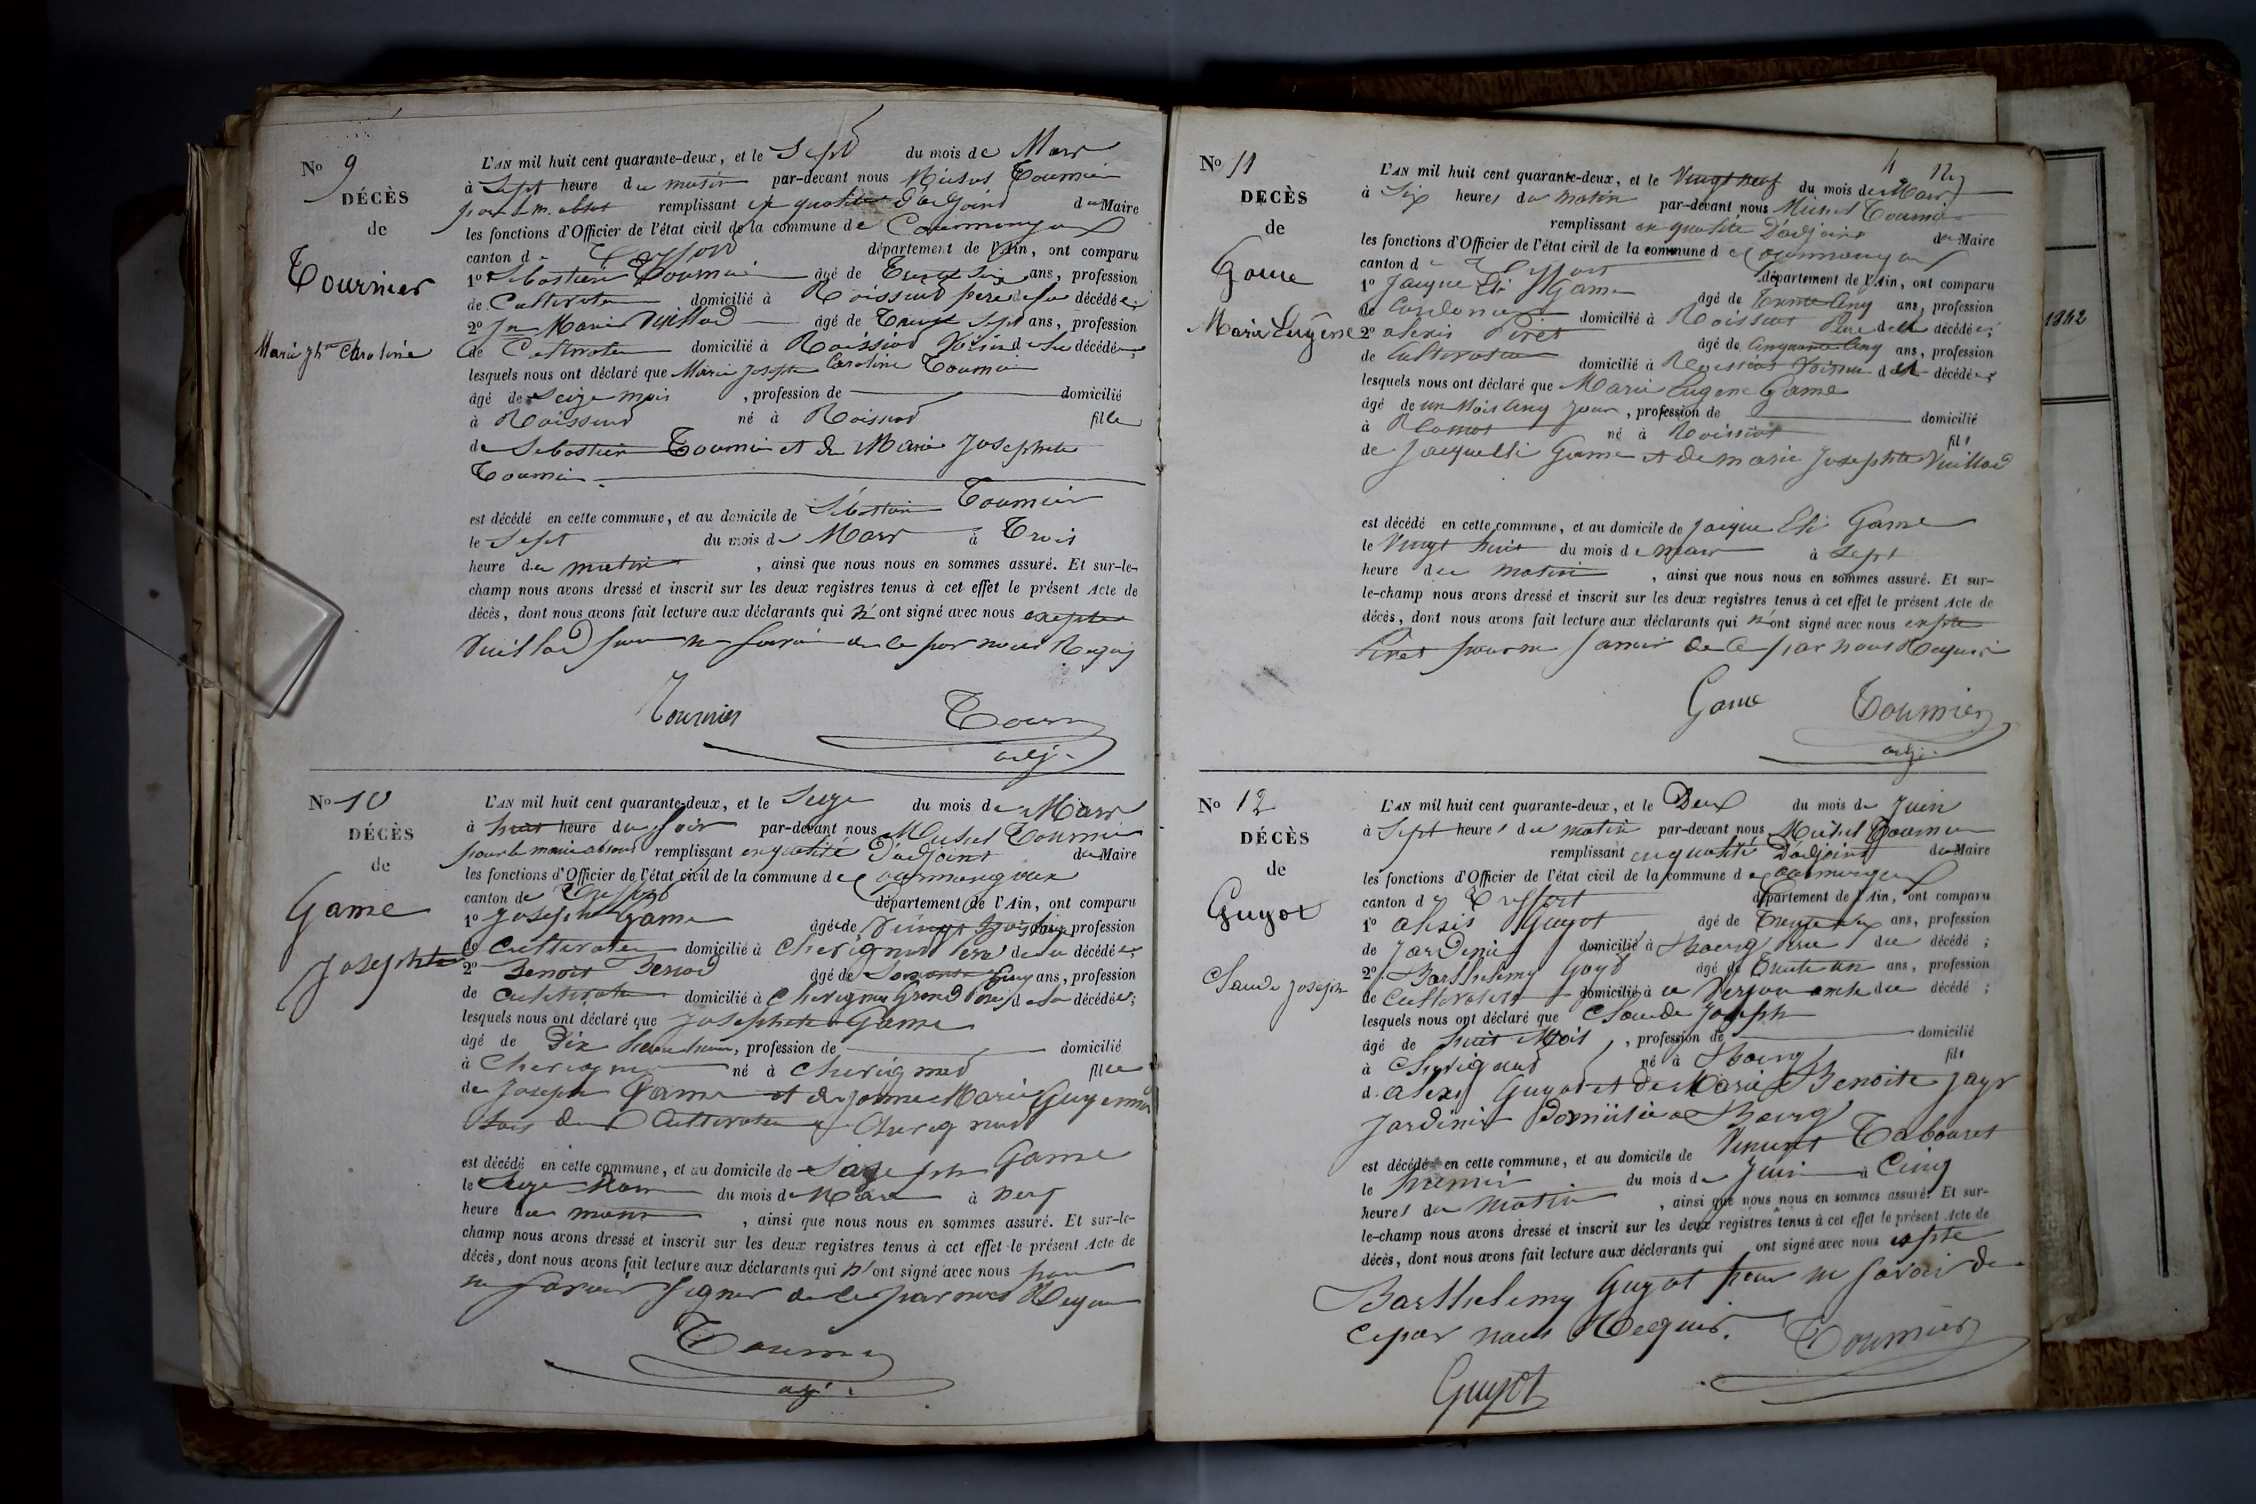 No 9
DÉCÈS
de
Tournier
Marie Jhte Caroline
L'AN mil huit cent quarante-deux, et le Sept du mois de Mars
à Sept heure du matin par-devant nous Michel Tournier
remplissant en qualité d'adjoint du Maire
les fonctions d'Officier de l'état civil de la commune de
canton de Treffort département de l'Ain, ont comparu
1º Sébastien Tournier âgé de Trente Six ans, profession
de Cultivateur domicilié à Roissiat père de la décédée;
2º Jn Marie Vuillod âgé de Sept ans, profession
de Cultivateur domicilié à Roissiat Voisin de la décédée;
lesquels nous ont déclaré que Marie Josephte Caroline Tournier
âgé de Seize mois, profession de domicilié
à Roissiat né à Roissiat fille
de Sébastien Tournier et de Marie Josephte
Tournier
est décédé en cette commune, et au domicile de Sébastien Tournier
le Sept du mois de Mars à Trois
heure du matin, ainsi que nous nous en sommes assuré. Et sur-le-
champ nous avons dressé et inscrit sur les deux registres tenus à cet effet le présent Acte de
décès, dont nous avons fait lecture aux déclarants qui n'ont signé avec nous excepte
Vuillod pour ne savoir de ce par nous Requis
Tournier Tourn
adj.
No 10
DÉCÈS
de
Game
Josephte
L'AN mil huit cent quarante-deux, et le Seize du mois de Mars
à huit heure du soir par-devant nous Michel Tournier
pour le maire absent remplissant en qualité d'adjoint du Maire
les fonctions d'Officier de l'état civil de la commune de
canton de Treffort département de l'Ain, ont comparu
1º Joseph Game âgé de profession
de Cultivateur domicilié à Chevignat père de la décédée;
2º Benoit âgé de ans, profession
de Cultivateur domicilié à Grand de la décédée;
lesquels nous ont déclaré que Josephte Game
âgé de Dix, profession de domicilié
à né à fille
de Joseph Game et de Marie
est décédé en cette commune, et au domicile de Joseph Game
le Seize du mois de Mars à neuf
heure du, ainsi que nous nous en sommes assuré. Et sur-le-
champ nous avons dressé et inscrit sur les deux registres tenus à cet effet le présent Acte de
décès, dont nous avons fait lecture aux déclarants qui n'ont signé avec nous pour
ne savoir signer de ce par nous Requis
Tournier
adj.
No 11
DÉCÈS
de
Game
Marie Eugène
L'AN mil huit cent quarante-deux, et le Vingt neuf du mois de Mars
à Six heures du matin par-devant nous Michel Tournier
remplissant en qualité D'adjoint du Maire
les fonctions d'Officier de l'état civil de la commune de
canton de Treffort département de l'Ain, ont comparu
1º Jacque Eli Game âgé de Trente Cinq ans, profession
de Cordonnier domicilié à Roissiat Père de la décédée;
2º Alexis Piret âgé de Cinquante Cinq ans, profession
de Cultivateur domicilié à Roissiat Voisin de la décédée;
lesquels nous ont déclaré que Marie Eugene Game
âgé de un Mois Cinq Jour, profession de domicilié
à né à Roissiat fils
de Jacque Eli Game et de Marie Josephte Vuillod
est décédé en cette commune, et au domicile de Jacque Eli Game
le Vingt huit du mois de mars à Sept
heure du matin, ainsi que nous nous en sommes assuré. Et sur-
le-champ nous avons dressé et inscrit sur les deux registres tenus à cet effet le présent Acte de
décès, dont nous avons fait lecture aux déclarants qui n'ont signé avec nous excepte
Piret pour ne savoir de ce par nous Requis
Game Tournier
adj.
No 12
DÉCÈS
de
Guyot
Claude Joseph
L'AN mil huit cent quarante-deux, et le Deux du mois de Juin
à Sept heures du matin par-devant nous Michel Tournier
remplissant en qualité D'adjoint du Maire
les fonctions d'Officier de l'état civil de la commune de
canton de Treffort département de l'Ain, ont comparu
1º Alexis Guyot âgé de ans, profession
de Jardinier domicilié à Bourg Père du décédé;
2º Barthelemy âgé de Trente un ans, profession
de Cultivateur domicilié à oncle du décédé;
lesquels nous ont déclaré que Claude Joseph
âgé de huit Mois, profession de domicilié
à Chevignat né à Bourg fils
d'Alexis Guyot et de Marie Benoite Jayr
Jardinier Domicilié à Bourg
est décédé en cette commune, et au domicile de Vincent Tabouret
le premier du mois de Juin à Cinq
heures du Matin, ainsi que nous nous en sommes assuré. Et sur-
le-champ nous avons dressé et inscrit sur les deux registres tenus à cet effet le présent Acte de
décès, dont nous avons fait lecture aux déclarants qui ont signé avec nous excepte
Barthelemy Guyot pour ne savoir de
ce par nous Requis.
Tournier
Guyot
1842